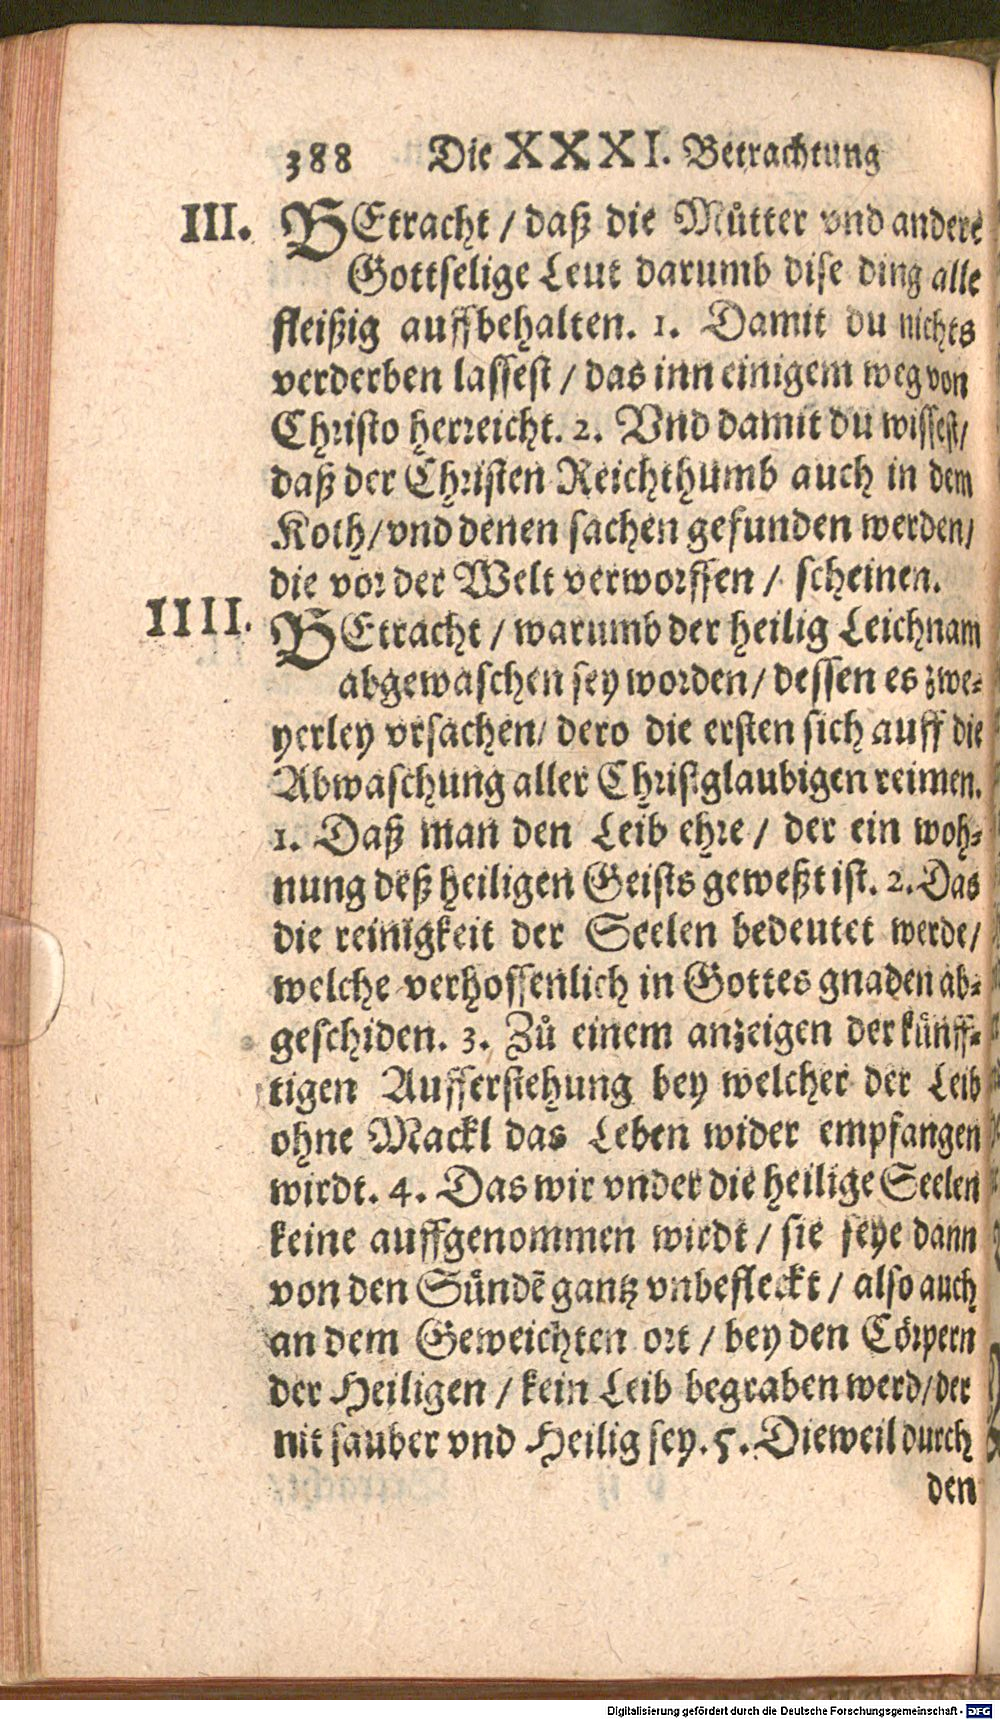 388 Die XXXI. Betrachtung
III. BEtracht / daß die Muͤtter vnd andere
Gottselige Leut darumb dise ding alle
fleißig auffbehalten. 1. Damit du nichts
verderben lassest / das inn einigem weg von
Christo herreicht. 2. Vnd damit du wissest/
daß der Christen Reichthumb auch in dem
Koth/vnd denen sachen gefunden werden/
die vor der Welt verworffen / scheinen.
IIII. BEtracht / warumb der heilig Leichnam
abgewaschen sey worden/ dessen es zwe-
yerley vrsachen/ dero die ersten sich auff die
Abwaschung aller Christglaubigen reimen.
1. Daß man den Leib ehre / der ein woh-
nung deß heiligen Geists geweßt ist. 2. Das
die reinigkeit der Seelen bedeutet werde/
welche verhoffenlich in Gottes gnaden ab-
geschiden. 3. Zuͦ einem anzeigen der kuͤnff-
tigen Aufferstehung bey welcher der Leib
ohne Mackl das Leben wider empfangen
wirdt. 4. Das wir vnder die heilige Seelen
keine auffgenommen wirdt / sie seye dann
von den Suͤndē gantz vnbefleckt / also auch
an dem Geweichten ort / bey den Coͤrpern
der Heiligen / kein Leib begraben werd/der
nit sauber vnd Heilig sey. 5. Dieweil durch
den
Digitalisierung gefördert durch die Deutsche Forschungsgemeinschaft - DFG